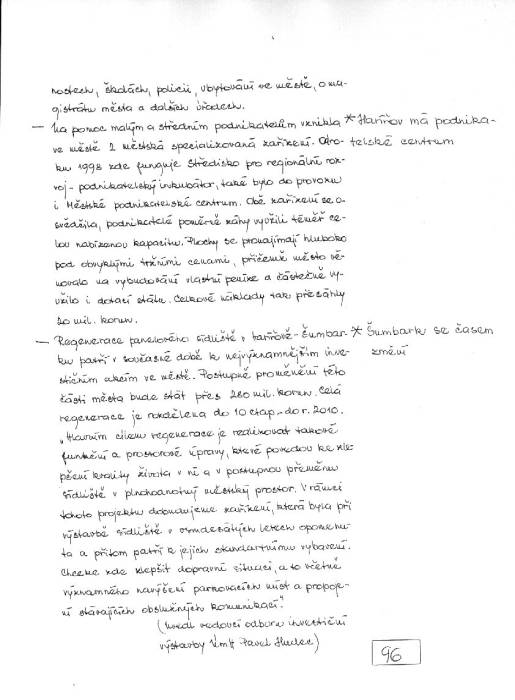 nostech, školách, policii, ubytování ve městě, o ma-
gistrátu města a dalších úřadech.
— Na pomoc malým a středním podnikatelům vznikla * Havířov má podnika-
ve městě 2 městská specializovaná zařízení. Od ro- telské centrum
ku 1998 zde funguje Středisko pro regionální roz-
voj - podnikatelský inkubátor, také bylo do provozu
i Městské podnikatelské centrum. Obě zařízení se o-
svědčila, podnikatelé poměrně záhy využili téměř ce-
lou nabízenou kapacitu. Plochy se pronajímají hluboko
pod obvyklými tržními cenami, přičemž město vě-
novalo na vybudování vlastní peníze a částečně vy-
užilo i dotací státu. Celkové náklady tak přesáhly
20 mil. korun.
— Regenerace panelového sídliště v Havířově - Šumbar- * Šumbark se časem
ku patří v současné době k nejvýznamnějším inve- změní
stičním akcím ve městě. Postupné proměnění této
části města bude stát přes 280 mil. korun. Celá
regenerace je rozdělena do 10 etap - do r. 2010.
„Hlavním cílem regenerace je realizovat takové
funkční a prostorové úpravy, které povedou ke zlep-
šení kvality života v ní a v postupnou přeměnu
sídliště v plnohodnotný městský prostor. V rámci
tohoto projektu dobudujeme zařízení, která byla při
výstavbě sídliště v osmdesátých letech opomenu-
ta a přitom patří k jejich standartnímu vybavení.
Chceme zde zlepšit dopravní situaci, a to včetně
významného navýšení parkovacích míst a propoje-
ní stávajících obslužných komunikací."
(uvedl vedoucí odboru investiční
výstavby MmH Pavel)
96